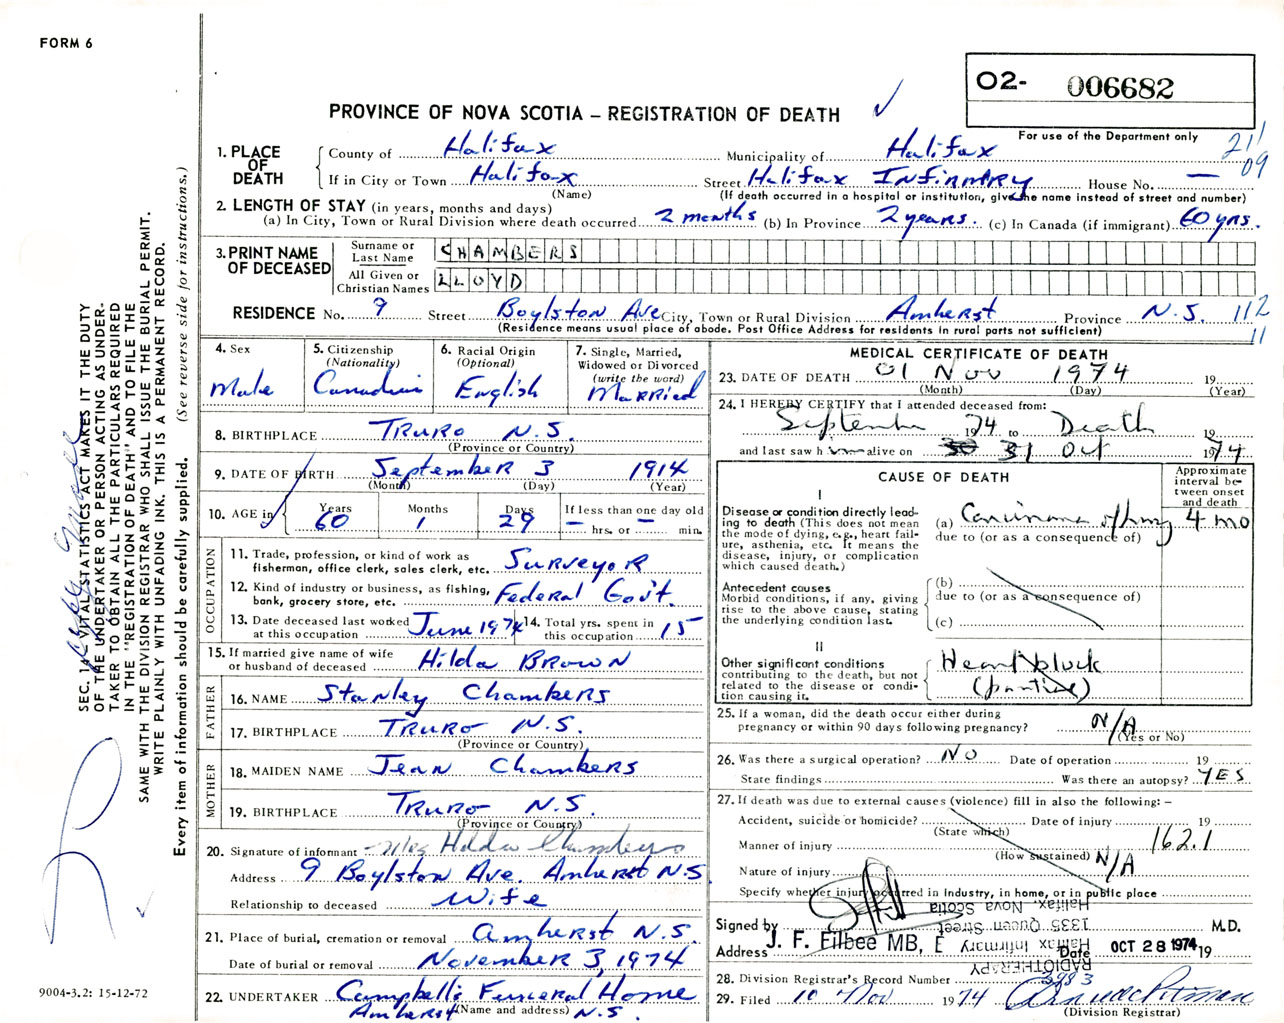 FORM 6
O2- 006682
PROVINCE OF NOVA SCOTIA – REGISTRATION OF DEATH
For use of the Department only
211
09
1. PLACE OF DEATH
County of Halifax Municipality of Halifax
If in City or Town Halifax Street Halifax Infirmary House No. —
(Name) (If death occurred in a hospital or institution, give the name instead of street and number)
2. LENGTH OF STAY (in years, months and days)
(a) In City, Town or Rural Division where death occurred 2 months (b) In Province 2 years. (c) In Canada (if immigrant) 60 yrs.
3. PRINT NAME OF DECEASED
Surname or Last Name CHAMBERS
All Given or Christian Names LLOYD
RESIDENCE No. 9 Street Boylston Ave City, Town or Rural Division Amherst Province N.S. 112
11
(Residence means usual place of abode. Post Office Address for residents in rural parts not sufficient)
4. Sex
Male
5. Citizenship
(Nationality)
Canadian
6. Racial Origin
(Optional)
English
7. Single, Married,
Widowed or Divorced
(write the word)
Married
8. BIRTHPLACE Truro N.S.
(Province or Country)
9. DATE OF BIRTH September 3 1914
(Month) (Day) (Year)
10. AGE in
Years Months Days If less than one day old
60 1 29 — hrs. or — min.
OCCUPATION
11. Trade, profession, or kind of work as
fisherman, office clerk, sales clerk, etc. Surveyor
12. Kind of industry or business, as fishing,
bank, grocery store, etc. Federal Gov't.
13. Date deceased last worked
at this occupation June 1974
14. Total yrs. spent in
this occupation 15
15. If married give name of wife
or husband of deceased Hilda Brown
FATHER
16. NAME Stanley Chambers
17. BIRTHPLACE Truro N.S.
(Province or Country)
MOTHER
18. MAIDEN NAME Jean Chambers
19. BIRTHPLACE Truro N.S.
(Province or Country)
20. Signature of informant Mrs Hilda Chambers
Address 9 Boylston Ave. Amherst N.S.
Relationship to deceased Wife
21. Place of burial, cremation or removal Amherst N.S.
Date of burial or removal November 3, 1974
22. UNDERTAKER Campbell's Funeral Home
Amherst (Name and address) N.S.
MEDICAL CERTIFICATE OF DEATH
23. DATE OF DEATH 01 Nov 1974 19
(Month) (Day) (Year)
24. I HEREBY CERTIFY that I attended deceased from:
September 1974 to Death 19
and last saw him alive on 30 31 Oct 1974
CAUSE OF DEATH
Approximate
interval be-
tween onset
and death
I
Disease or condition directly lead-
ing to death (This does not mean
the mode of dying, e.g., heart fail-
ure, asthenia, etc. It means the
disease, injury, or complication
which caused death.)
(a) Carcinoma of lung 4 mo
due to (or as a consequence of)
Antecedent causes
Morbid conditions, if any, giving
rise to the above cause, stating
the underlying condition last.
(b)
due to (or as a consequence of)
(c)
II
Other significant conditions
contributing to the death, but not
related to the disease or condi-
tion causing it.
Heart block
(partial)
25. If a woman, did the death occur either during
pregnancy or within 90 days following pregnancy? N/A
(Yes or No)
26. Was there a surgical operation? NO Date of operation 19
State findings Was there an autopsy? YES
27. If death was due to external causes (violence) fill in also the following: –
Accident, suicide or homicide? Date of injury 19
(State which)
Manner of injury 162.1
(How sustained) N/A
Nature of injury
Specify whether injury occurred in industry, in home, or in public place
Halifax, Nova Scotia
1335 Queen Street
Halifax Infirmary
RADIOTHERAPY
Signed by M.D.
Address J. F. Filbee MB, Date OCT 28 1974 19
28. Division Registrar's Record Number 3983
29. Filed 10 Nov 1974
(Division Registrar)
SEC. 14—VITAL STATISTICS ACT MAKES IT THE DUTY
OF THE UNDERTAKER OR PERSON ACTING AS UNDER-
TAKER TO OBTAIN ALL THE PARTICULARS REQUIRED
IN THE "REGISTRATION OF DEATH" AND TO FILE THE
SAME WITH THE DIVISION REGISTRAR WHO SHALL ISSUE THE BURIAL PERMIT.
WRITE PLAINLY WITH UNFADING INK. THIS IS A PERMANENT RECORD.
Every item of information should be carefully supplied. (See reverse side for instructions.)
9004-3.2: 15-12-72